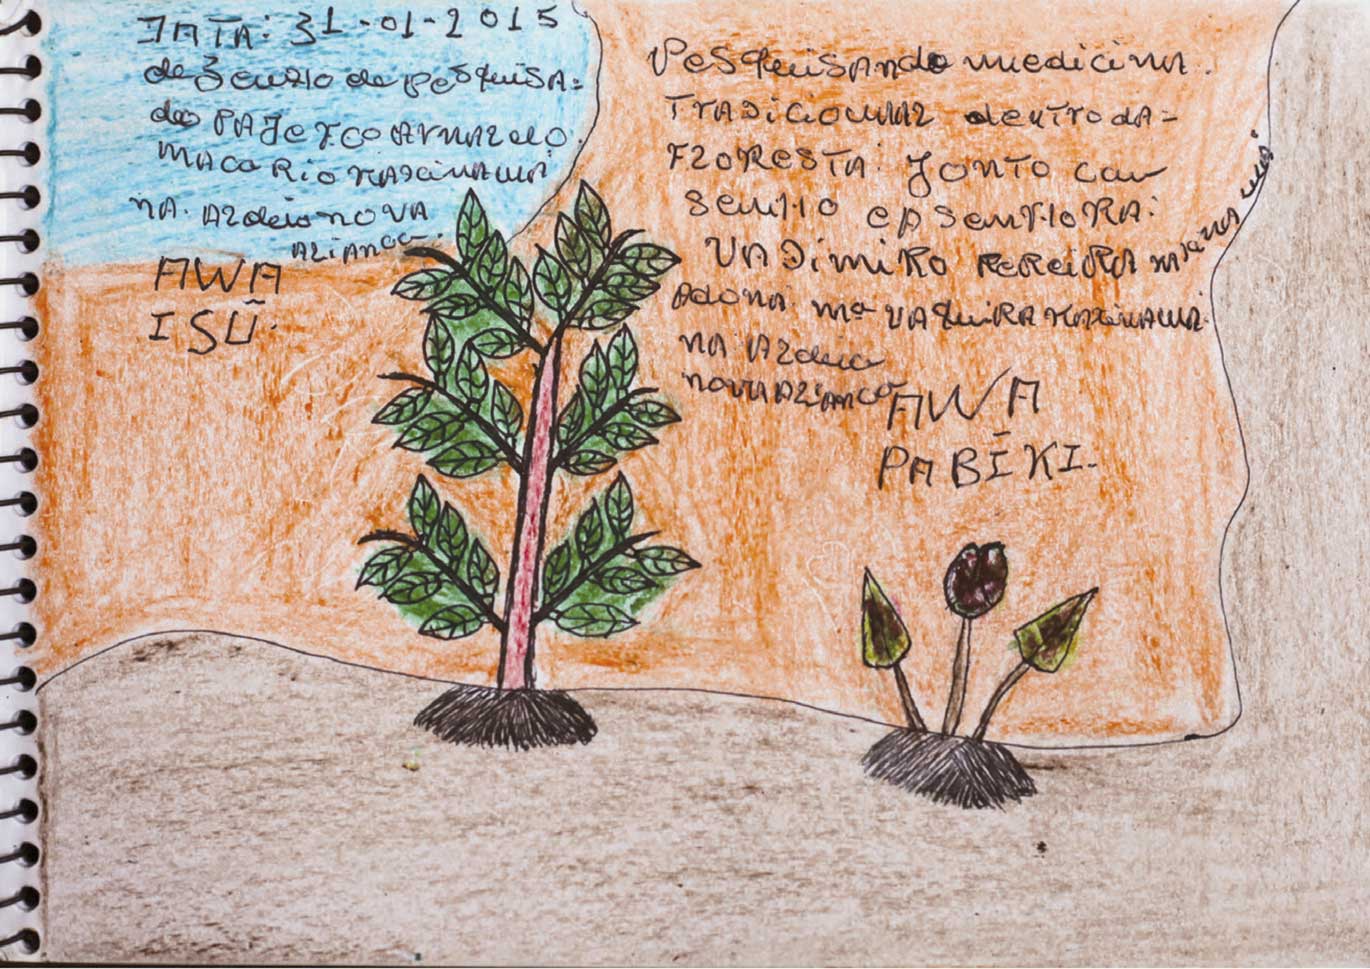 DATA: 31-01-2015
desenho de pesquisa-
do PAJe FCO ARNALdo
MACARIO KAXINAWA
NA. ALdeia NOVA
ALIANCA.
AWA
ISŨ.
PesquisANdo medicina.
TRADicioNAL deNTRO dA-
FLORESTA: JONTO com
SeNHO e A SeNHORA:
VALdiMIRO PeReiRA
AdoNA Mª
KAXINAWA
NA ALdeia
NOVA ALIANCA
AWA
PABĪKI-